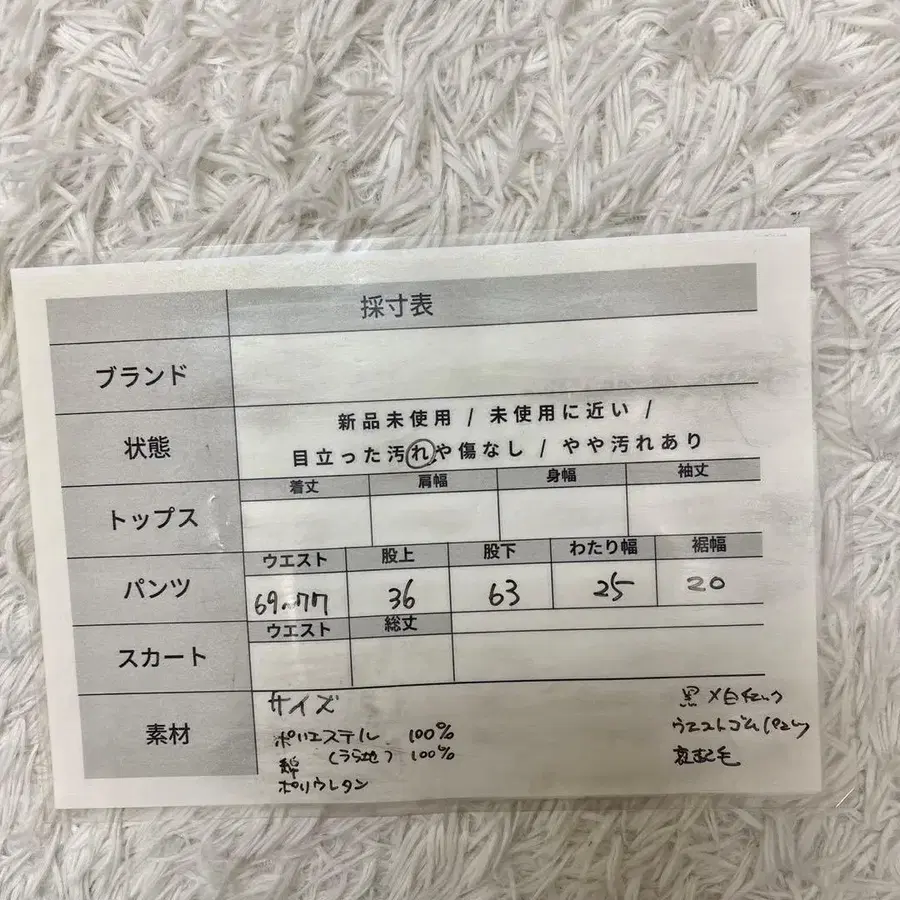 採寸表
ブランド
状態
新品未使用 / 未使用に近い /
目立った汚れや傷なし / やや汚れあり
トップス
着丈 肩幅 身幅 袖丈
パンツ
ウエスト 股上 股下 わたり幅 裾幅
69~77 36 63 25 20
スカート
ウエスト 総丈
素材
サイズ
ポリエステル 100%
(うら地) 100%
ポリウレタン
黒×白チェック
ウエストゴム
裏起毛